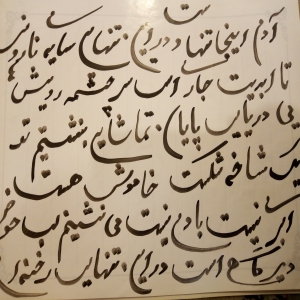 آدم اینجا تنهاست و در این تنهایی سایه نارونی
تا ابدیت جاری است سرچشمه رویش
یی دریایی پایان تماشایی
شاخه شکست خاموش
ابری نیست بادی نیست می نشینم لب حوض
دیرگاهی است در این تنهایی